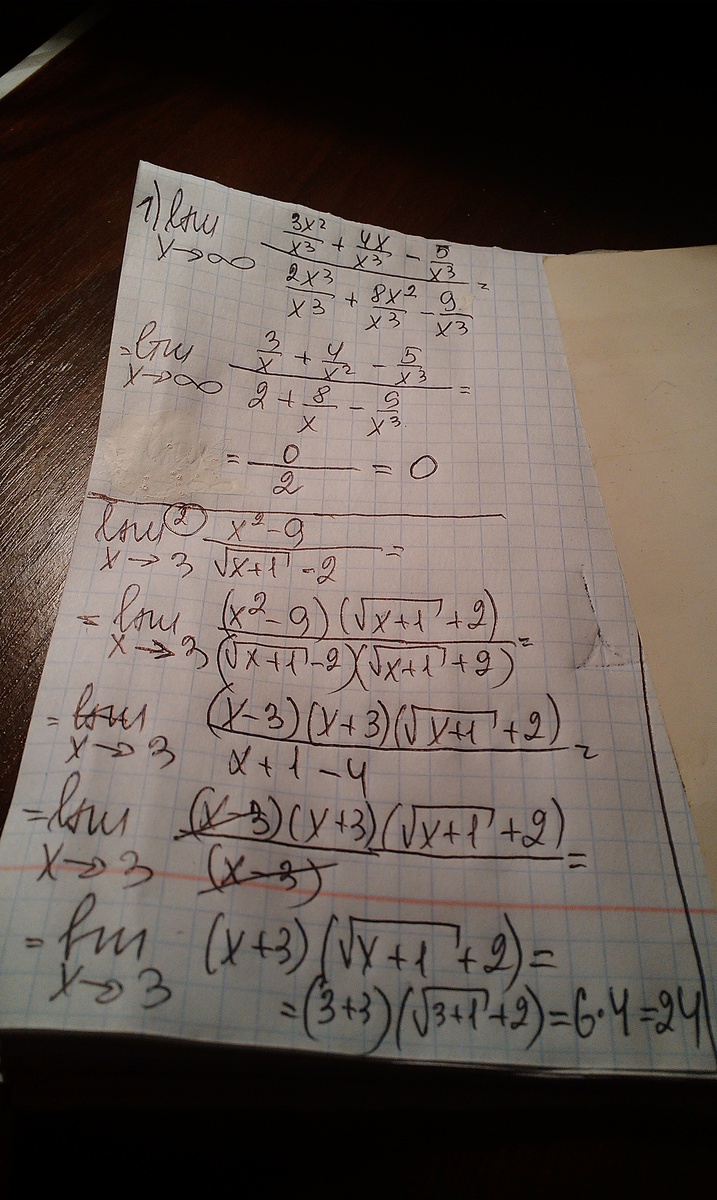 1) lim x→∞ (3x²/x³ + 4x/x³ − 5/x³) / (2x³/x³ + 8x²/x³ − 9/x³) =
= lim x→∞ (3/x + 4/x² − 5/x³) / (2 + 8/x − 9/x³) =
= 0/2 = 0
② lim x→3 (x²−9) / (√(x+1) − 2) =
= lim x→3 (x²−9)(√(x+1) + 2) / (√(x+1) − 2)(√(x+1) + 2) =
= lim x→3 (x−3)(x+3)(√(x+1) + 2) / x+1−4 =
= lim x→3 (x−3)(x+3)(√(x+1) + 2) / (x−3) =
= lim x→3 (x+3)(√(x+1) + 2) =
= (3+3)(√(3+1) + 2) = 6·4 = 24